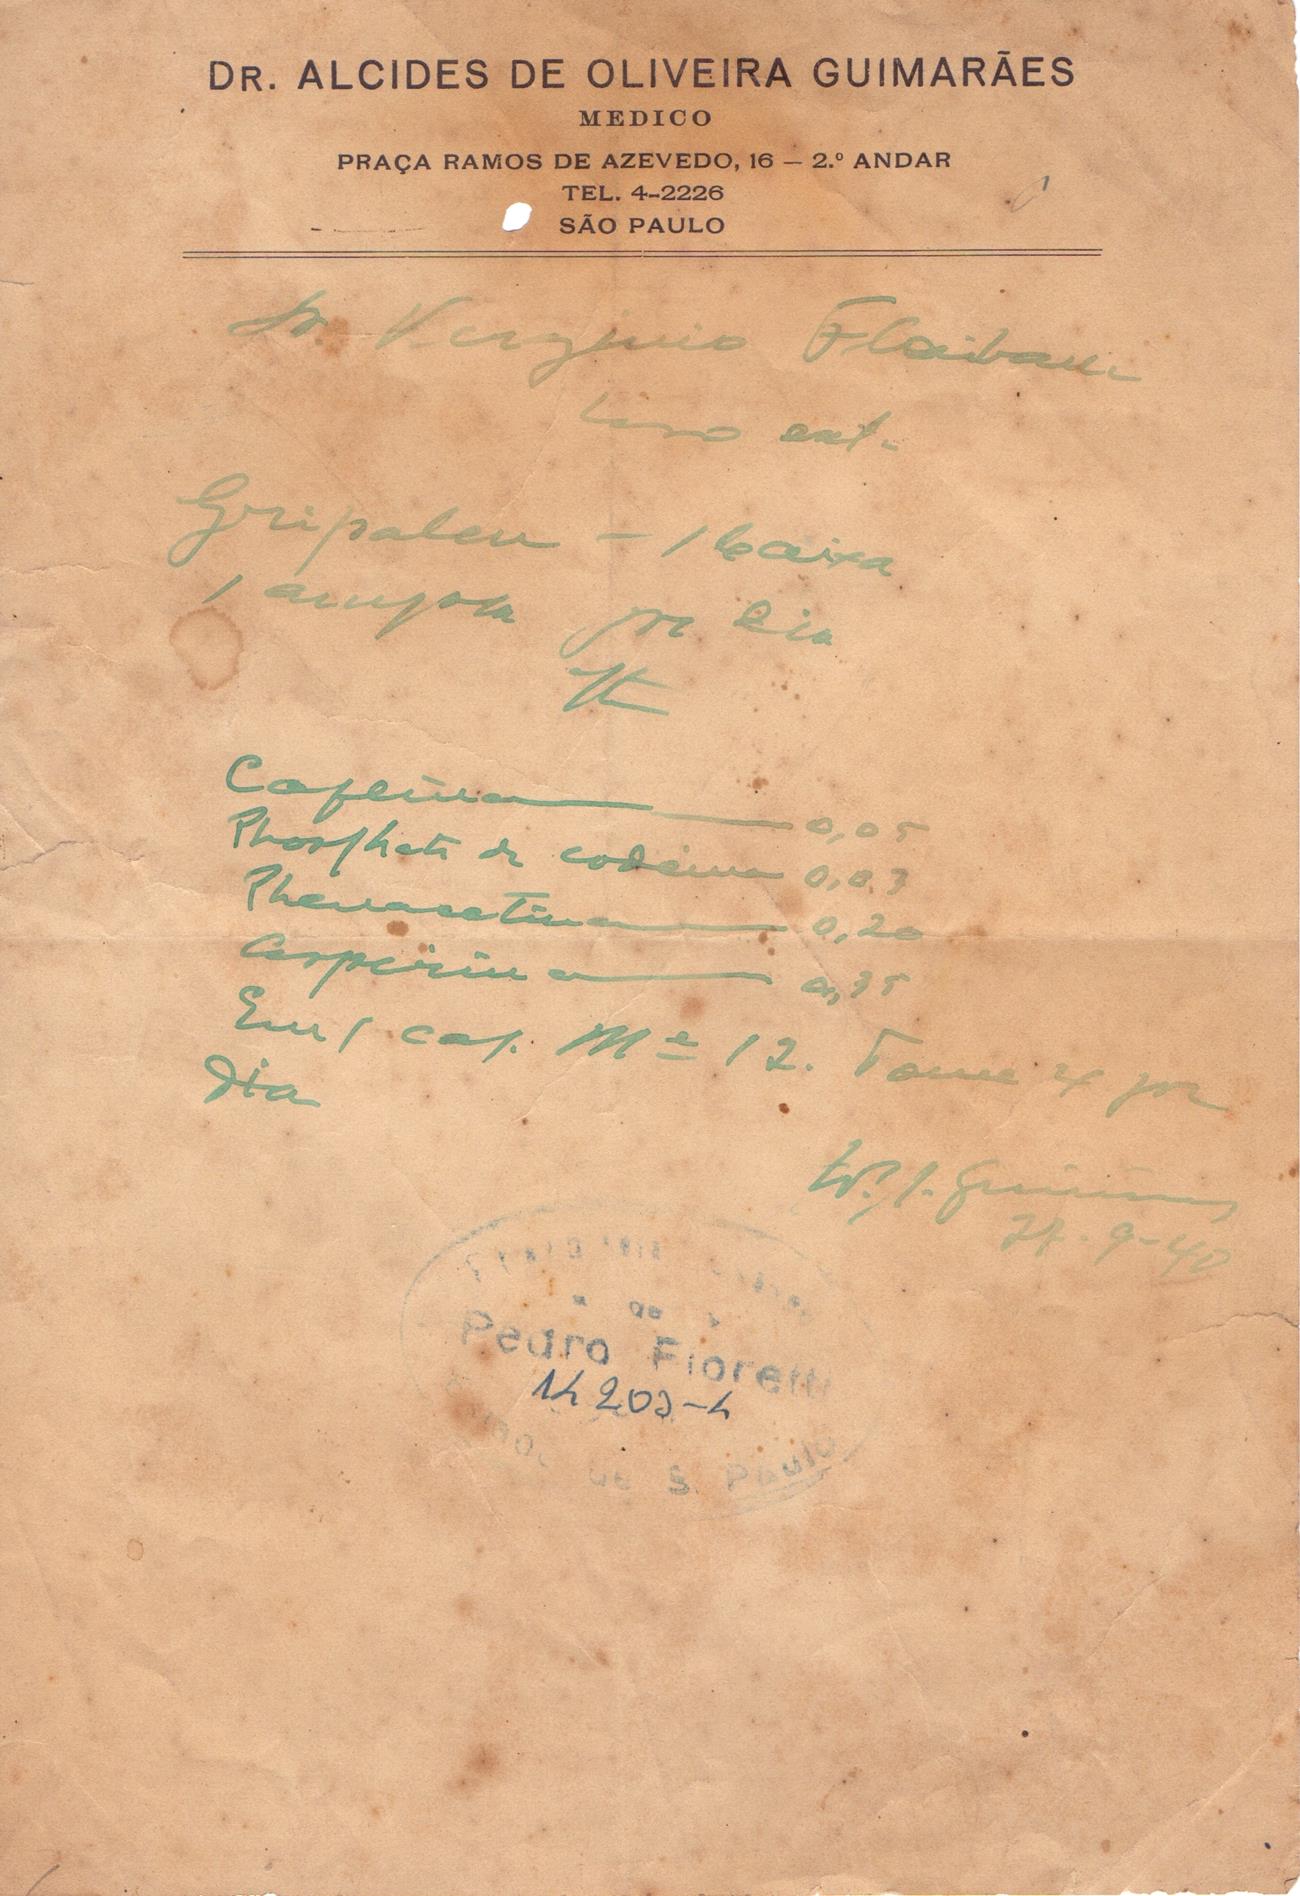 DR. ALCIDES DE OLIVEIRA GUIMARÃES
MEDICO
PRAÇA RAMOS DE AZEVEDO, 16 — 2.º ANDAR
TEL. 4-2226
SÃO PAULO
Sr. Verginio Flaibam
Uso ext.
Gripalen - 1 caixa
1 ampola por dia
Cafeina 0,05
Phosphato de codeina 0,03
Phenacetina 0,20
Aspirina 0,35
Em 1 cap. Me 12. Tome 2 por
Dia
27-9-40
de
Pedro Fioretti
14203-4
de S. Paulo